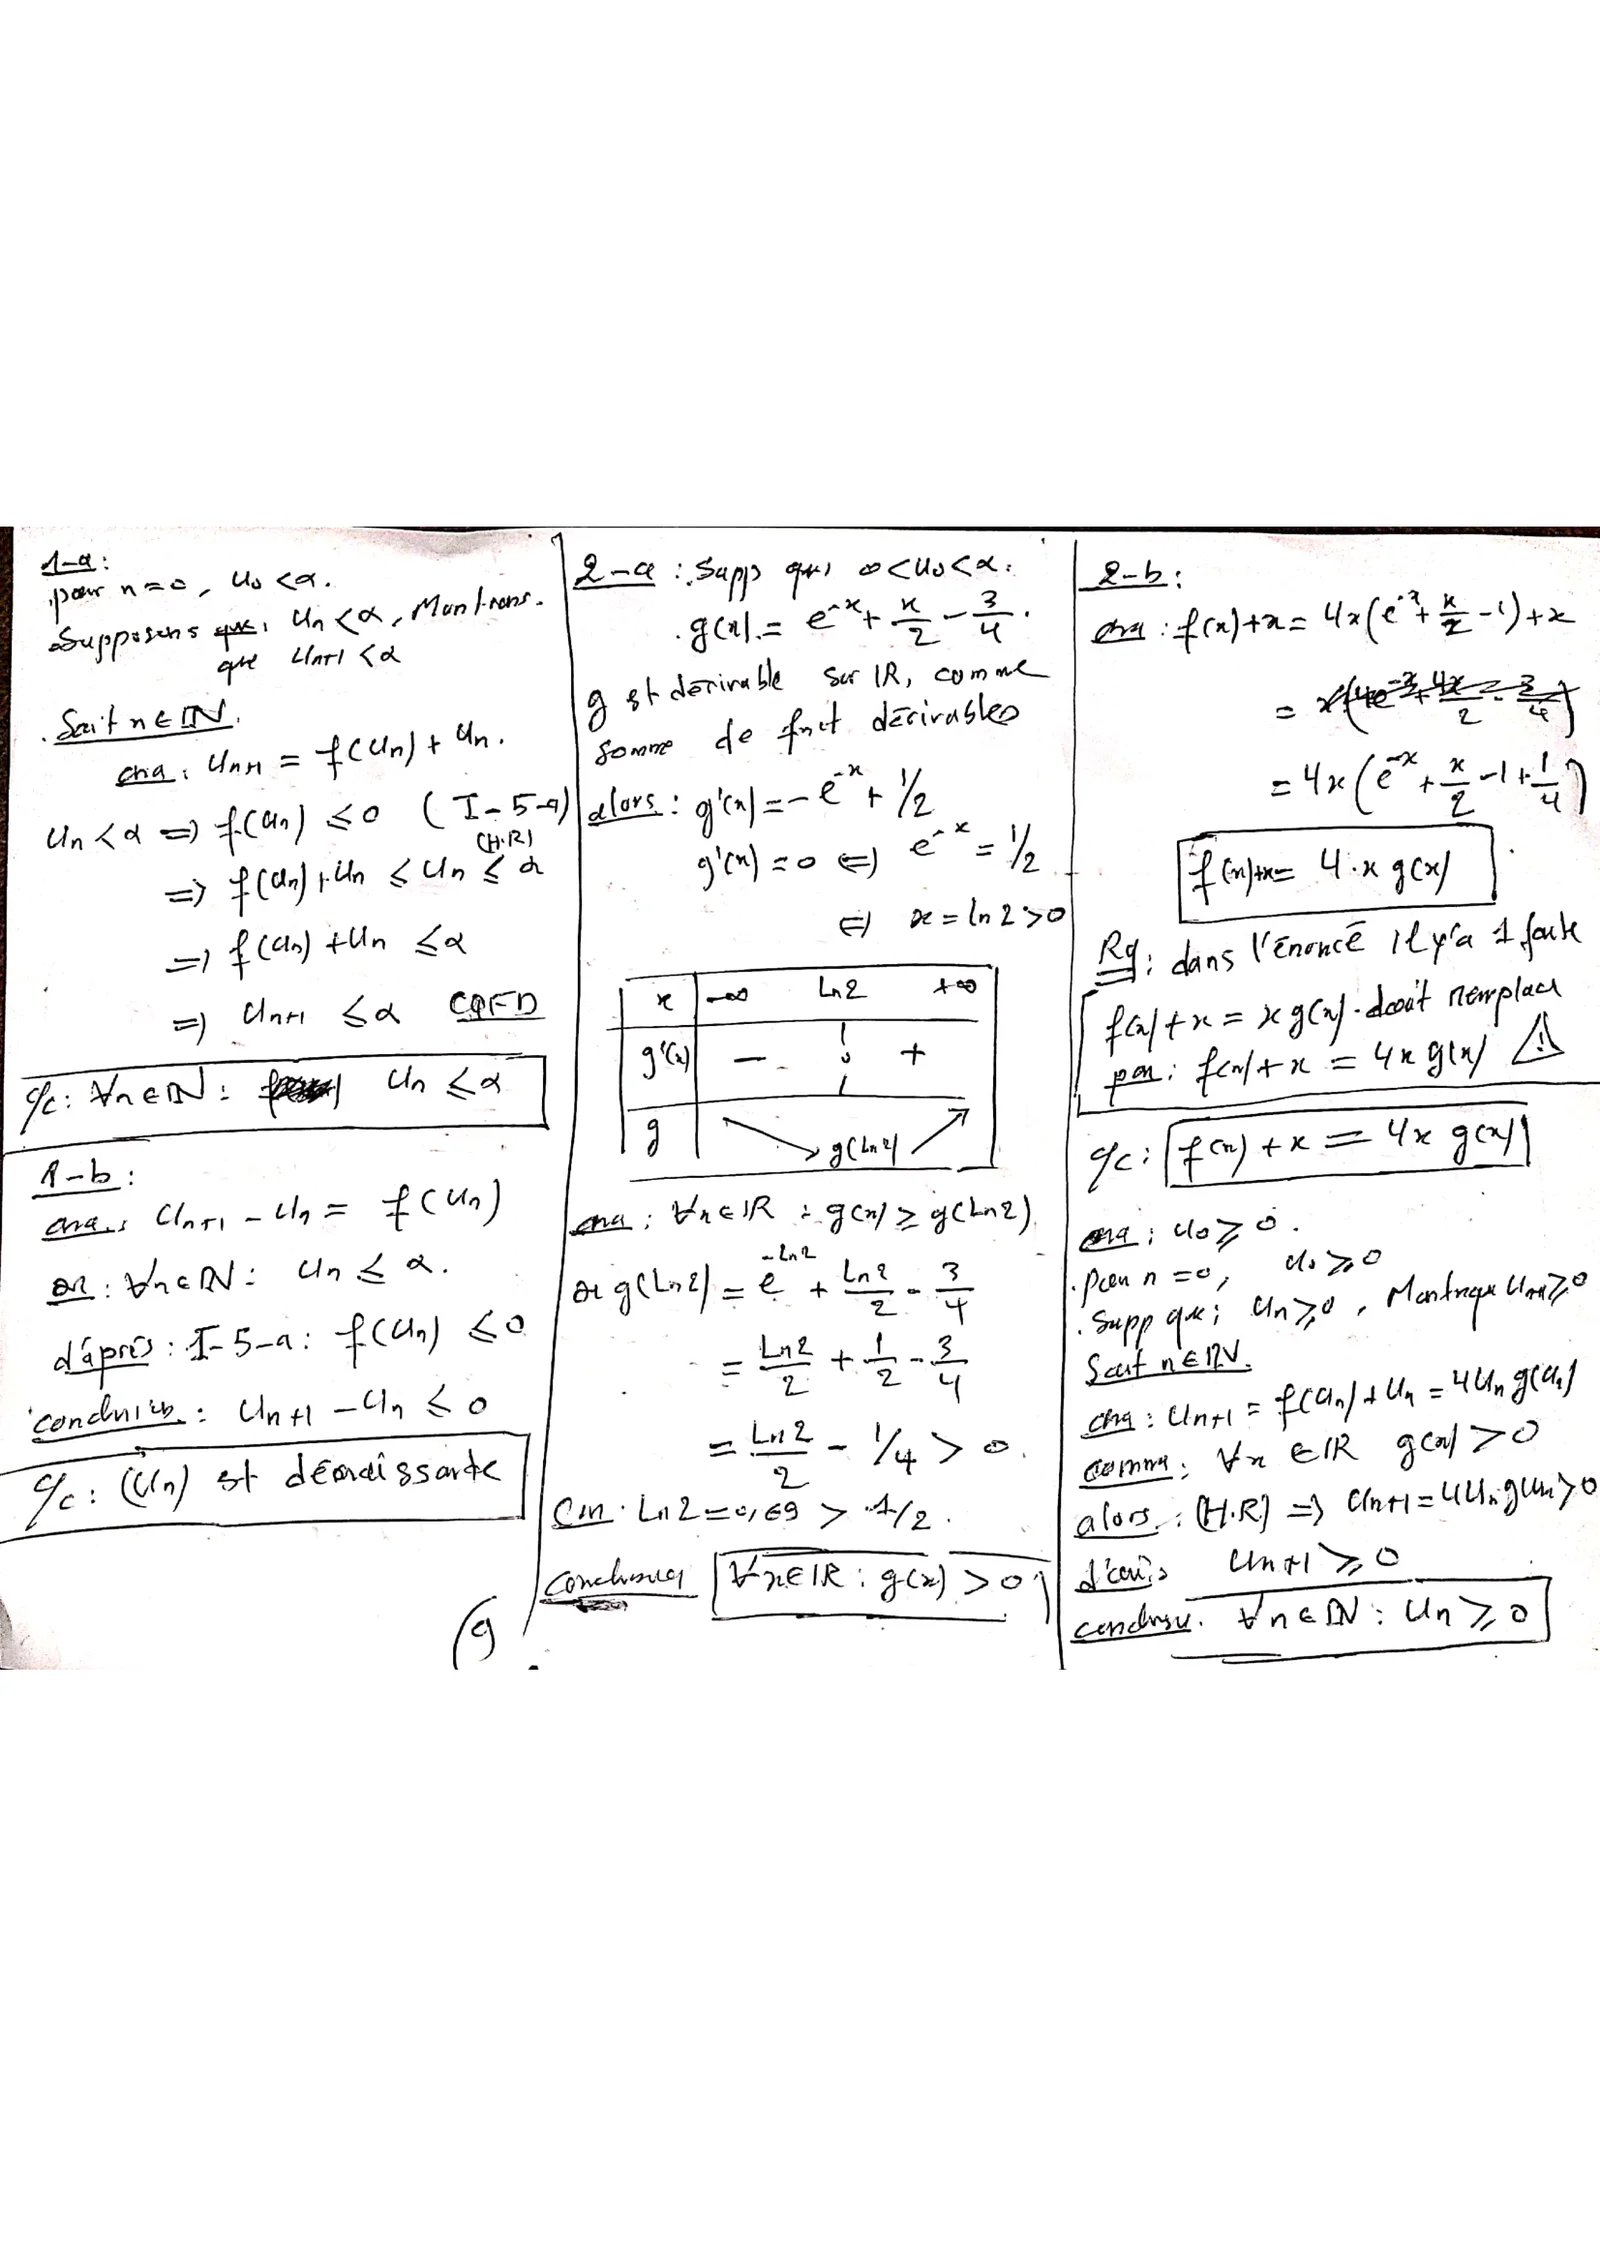 1-a:
pour n=0, U0 < α.
Supposons que: Un < α, Montrons
que Un+1 < α
Soit n ∈ IN.
ona: Un+1 = f(Un) + Un.
Un < α ⇒ f(Un) ≤ 0 (I-5-a)
(H.R)
⇒ f(Un) + Un ≤ Un ≤ α
⇒ f(Un) + Un ≤ α
⇒ Un+1 ≤ α CQFD
%c: ∀n∈IN: Un ≤ α
1-b:
ona: Un+1 - Un = f(Un)
or: ∀n∈IN: Un ≤ α.
d'après: I-5-a: f(Un) ≤ 0
Un+1 - Un ≤ 0
%c: (Un) est décroissante
2-a: Supp que 0 < U0 < α.
g(x) = e^-x + x/2 - 3/4.
g est dérivable sur IR, comme
somme de fnct dérivables
alors: g'(x) = -e^-x + 1/2
g'(x) = 0 ⇔ e^-x = 1/2
⇔ x = ln 2 > 0
x -∞ Ln2 +∞
g'(x) - 0 +
g g(Ln2)
ona: ∀x∈IR : g(x) ≥ g(Ln2)
or g(Ln2) = e^-Ln2 + Ln2/2 - 3/4
= Ln2/2 + 1/2 - 3/4
= Ln2/2 - 1/4 > 0.
Ln2 = 0,69 > 1/2.
∀x∈IR : g(x) > 0
(9
2-b:
ona: f(x)+x = 4x(e^-x + x/2 - 1) + x
= x(4e^-x + 4x/2 - 3/4)
= 4x(e^-x + x/2 - 1 + 1/4)
f(x)+x = 4.x g(x)
Rq: dans l'énoncé il y'a 1 faute
f(x)+x = x g(x). doit remplacer
par: f(x)+x = 4x g(x) ⚠
%c: f(x) + x = 4x g(x)
ona: U0 ≥ 0.
Pour n=0, U0 ≥ 0
Supp que: Un ≥ 0, Montrque Un+1 ≥ 0
Soit n∈IN.
ona: Un+1 = f(Un) + Un = 4Un g(Un)
comme: ∀x ∈ IR g(x) > 0
alors: (H.R) ⇒ Un+1 = 4Un g(Un) > 0
d'où: Un+1 ≥ 0
∀n∈IN: Un ≥ 0